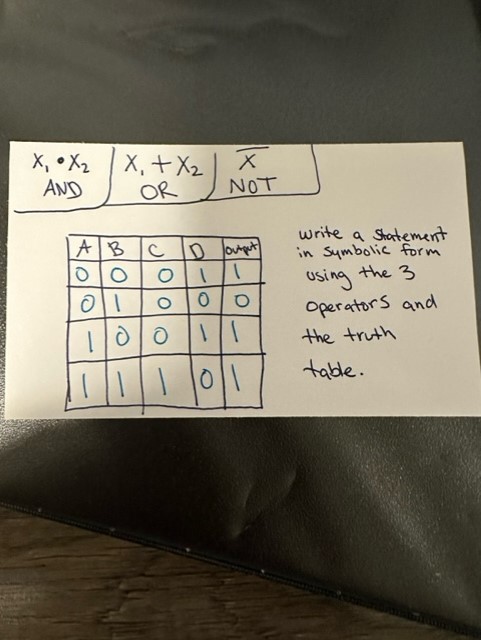 X₁ • X₂ X₁ + X₂ X̅
AND OR NOT
A B C D Output
0 0 0 1 1
0 1 0 0 0
1 0 0 1 1
1 1 1 0 1
Write a Statement
in symbolic form
using the 3
operators and
the truth
table.